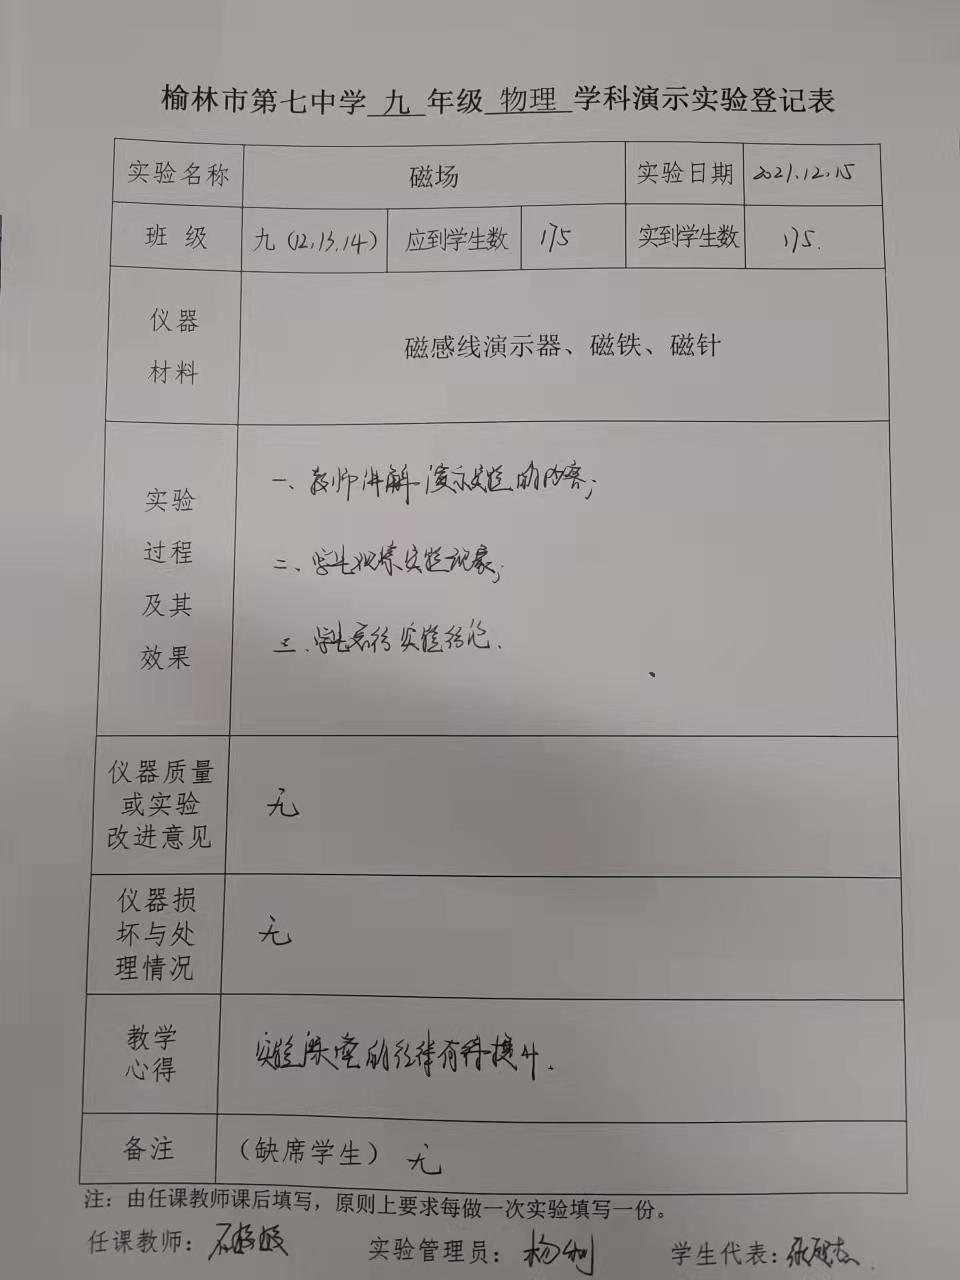 榆林市第七中学 九 年级 物理 学科演示实验登记表
实验名称 磁场 实验日期 2021.12.15
班 级 九（12,13,14） 应到学生数 175 实到学生数 175.
仪器
材料
磁感线演示器、磁铁、磁针
实验
过程
及其
效果
一、教师讲解演示实验的内容；
二、学生观察实验现象；
三、学生总结实验结论.
仪器质量
或实验
改进意见
无
仪器损
坏与处
理情况
无
教学
心得
实验课堂的纪律有待提升.
备注 （缺席学生） 无
注：由任课教师课后填写，原则上要求每做一次实验填写一份。
任课教师： 实验管理员：杨利 学生代表：